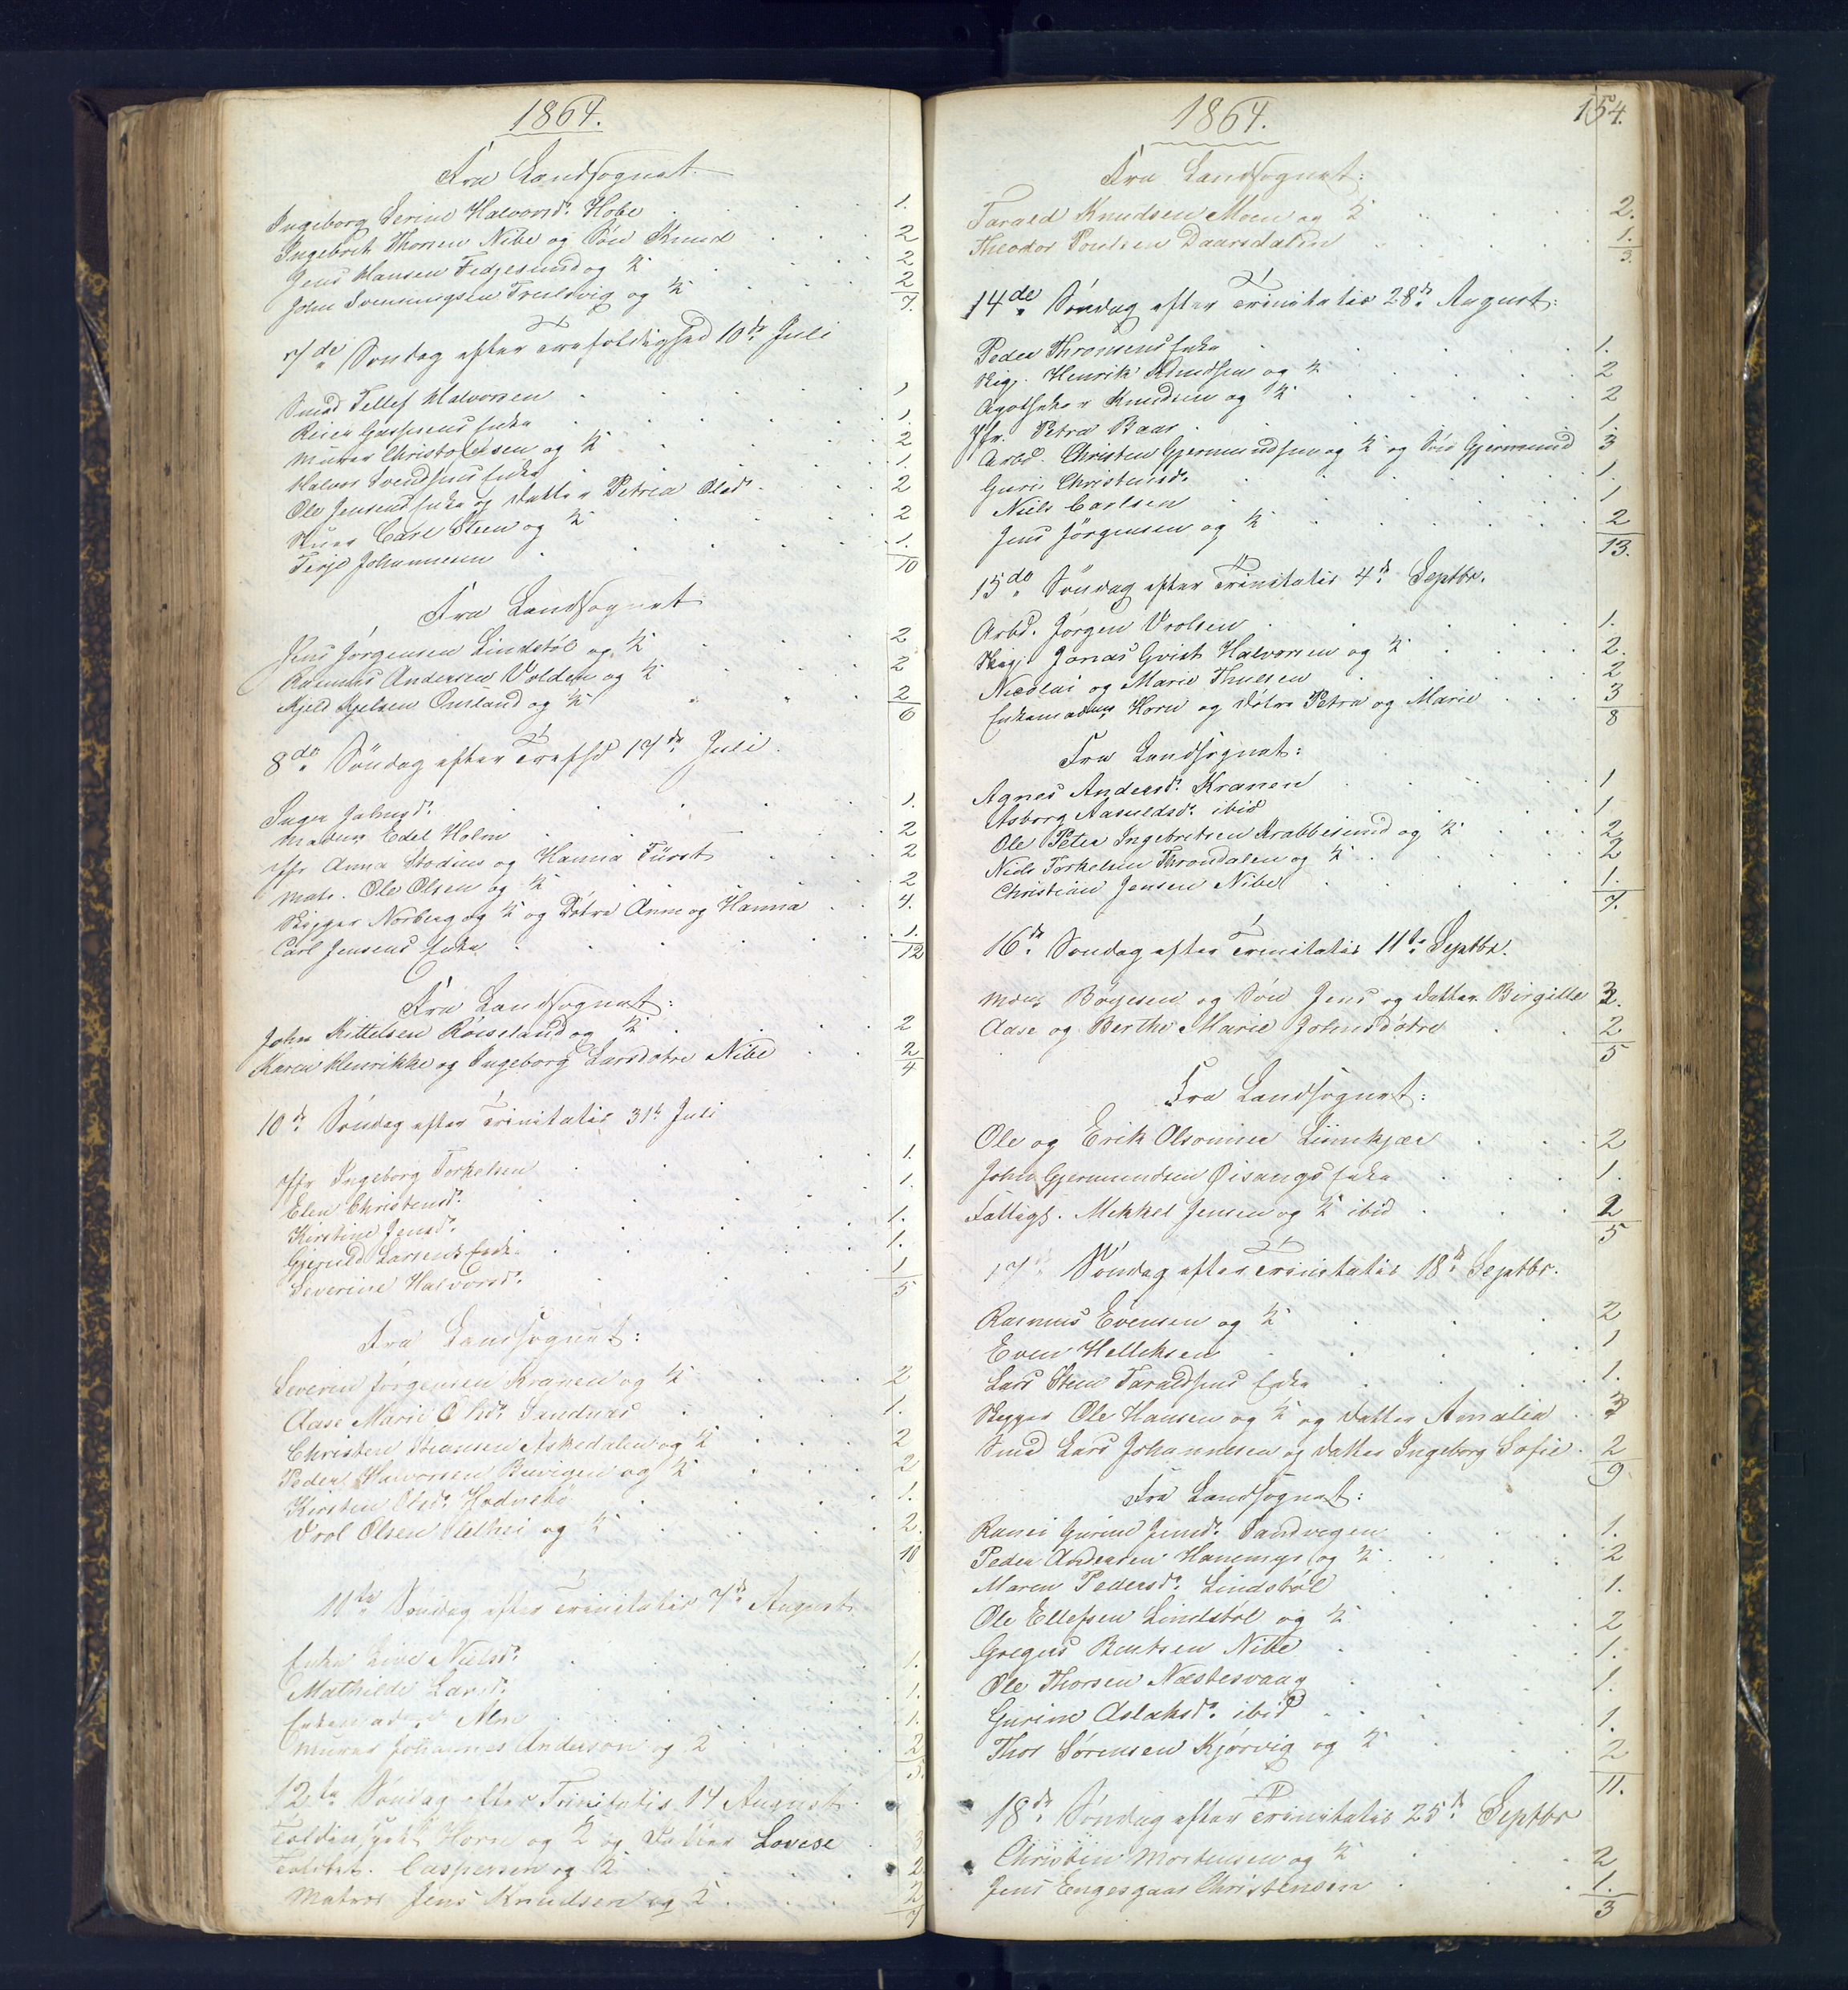 1864.
Fra Landsognet
Ingeborg Serine Halvorsd: Hobe 1.
Ingebret Thorsen Nibe og Søn Knud 2
Jens Hansen Fedjesund og K 2
John Svenningsen Trulsvig og K 2
7.
7de Søndag efter Trefoldighed 10de Juli
Smed Tellef Halvorsen 1
Enke 1.
Murer Christophersen og K 2
Halvor Svendsens Enke 1.
Ole Jensens Enke og Datter Petrea Olsd: 2
Carl Steen og K 2
Terje Johannesen 1.
10
Fra Landsognet
Jens Jørgensen Lindstøl og K 2
Rasmus Andersen Volden og K 2
Kjeld Kjelsen Omland og K 2
6
8de Søndag efter Trefhd 17de Juli.
Inger Johnsd: 1.
Madame Edel Holm 2
Jfr Anna Stodius og Hanna Fürst 2
Matr. Ole Olsen og K 2
Skipper Norberg og K og Døtre Anne og Hanna 4.
Carl Jensens Enke 1.
12
Fra Landsognet:
John Kittelsen Roisland og K 2
Karen Henrikke og Ingeborg Larsdøtre Nibe 2
4
10de Søndag efter Trinitatis 31te Juli
Jfr Ingeborg Torkelsen 1.
Elen Christensd: 1.
Kirstine Jensd: 1.
Gjeruld Larsens Enke 1.
Severine Halvorsd: 1
5
Fra Landsognet:
Severin Jørgensen Kranen og K 2
Aase Marie Olsd: Sandnæs 1.
Christen Hansen Askedalen og K 2
Peder Halvorsen Buvigen og K 2
Kirsten Olsd: Hodnebø 1.
Vrol Olsen Slethei og K 2.
10
11te Søndag efter Trinitatis 7de August
Enke Live Nielsd: 1.
Mathilde Larsd: 1.
Enkemadame Moe 1.
Murer Johannes Anderson og K 2
5.
12te Søndag efter Trinitatis 14 August
Toldinspekt Horn og K og Datter Lovise 3
Toldbet. Caspersen og K 2
Matros Jens Knudsen og K 2
7
1864.
154.
Fra Landsognet:
Tarald Knudsen Moen og K 2.
Theodor Poulsen Daarsdalen 1.
3.
14de Søndag efter Trinitatis 28de August:
Peder Thronsens Enke 1.
Skip. Henrik Knudsen og K 2
Apotheker Knudsen og K 2
Jfr. Petra Baar 1.
Arbd. Christen Gjermundsen og K og Søn Gjermund 3
Guri Christensd: 1.
Niels Carlsen 1
Jens Jørgensen og K 2
13.
15de Søndag efter Trinitatis 4de Septbr.
Arbd. Jørgen Vrolsen 1.
Skip. Jonas Qvist Halvorsen og K 2.
Nicolai og Marie Thulsen 2
Enkemadame Horn og Døtre Petra og Marie 3
8
Fra Landsognet:
Agnes Andersd: Kranen 1
Asborg Aanulsd: ibid 1
Ole Peter Ingebretsen Krabbesund og K 2
Niels Torkelsen Throndalen og K 2
Christian Jensen Nibe 1.
7.
16de Søndag efter Trinitatis 11te Septbr.
Madme Børgesen og Søn Jens og Datter Birgitte 3.
Aase og Berthe Marie Johnsdøtre 2
5
Fra Landsognet:
Ole og Erik Olsønner Liimkjær 2
John Gjermundsen Øisangs Enke 1.
Fattigl. Mekkel Jensen og K ibid 2
5
17de Søndag efter Trinitatis 18de Septbr.
Rasmus Evensen og K 2
Even Helleksen 1
Lars Steen Taraldsens Enke 1.
Skipper Ole Hansen og K og Datter Amalia 3
Smed Lars Johannesen og Datter Ingeborg Sofie 2
9
Fra Landsognet:
Gurine Jensd: Sandvigen 1.
Peder Andersen Hanemyr og K 2
Maren Pedersd: Lindstøl 1.
Ole Ellefsen Lindstøl og K 2
Gregers Bentsen Nibe 1.
Ole Thorsen Næstesvaag 1.
Gurine Aslaksd: ibid 1.
Thor Sørensen Kjørvig og K 2
11.
18de Søndag efter Trinitatis 25de Septbr
Christen Mortensen og K 2
Jens Engesgaar Christensen 1.
3